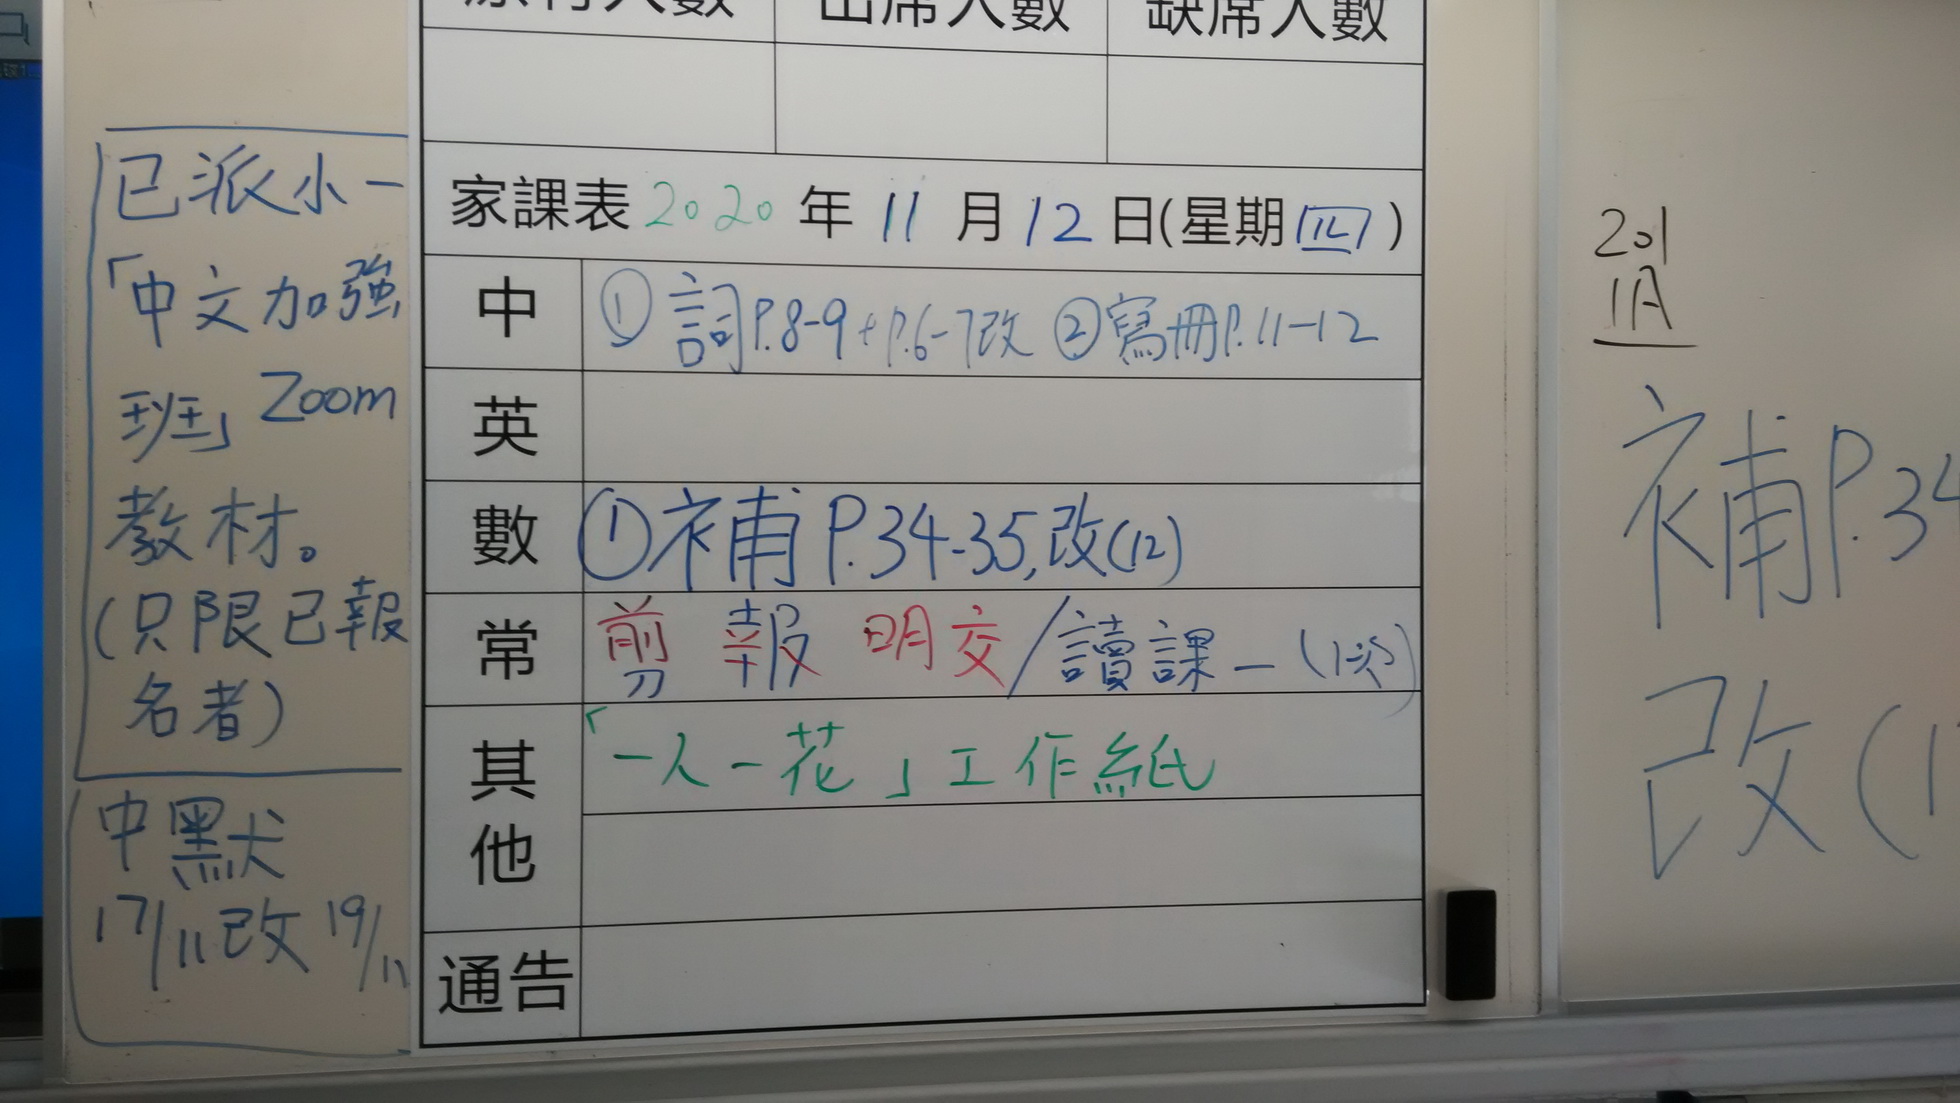 出席人數
缺席人數
已派小一
「中文加強
班」Zoom
教材。
(只限已報
名者)
中默
17/11改19/11
家課表2020年11月12日(星期四)
中 ①詞P.8-9+P.6-7改 ②寫冊P.11-12
英
數 ①補P.34-35,改(12)
常 剪報 明交/讀課一(1次)
其他 「一人一花」工作紙
通告
201
1A
補P.34
改(1